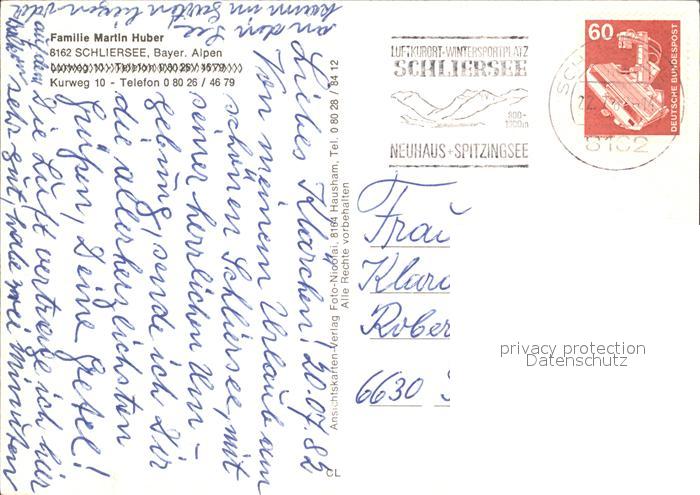 Familie Martin Huber
8162 SCHLIERSEE, Bayer. Alpen
Kurweg 10 - Telefon 0 80 26 / 46 79
Liebes Klärchen! 20.07.82
Von meinem Urlaub am
schönen Schliersee, mit
seiner herrlichen Um-
gebung, sende ich Dir
die allerherzlichsten
Grüßen, Deine Gretel!
Die Luft vertrage ich hier
sehr gut, habe zwei Minuten
an den See
kaum im
Ansichtskarten-Verlag Foto-Nicolai, 8164 Hausham, Tel. 0 80 28 / 84 12
Alle Rechte vorbehalten
CL
LUFTKURORT-WINTERSPORTPLATZ
SCHLIERSEE
800-
NEUHAUS+SPITZINGSEE
SCH
8162
60
DEUTSCHE BUNDESPOST
Frau
Klara
Rober
6630
privacy protection
Datenschutz